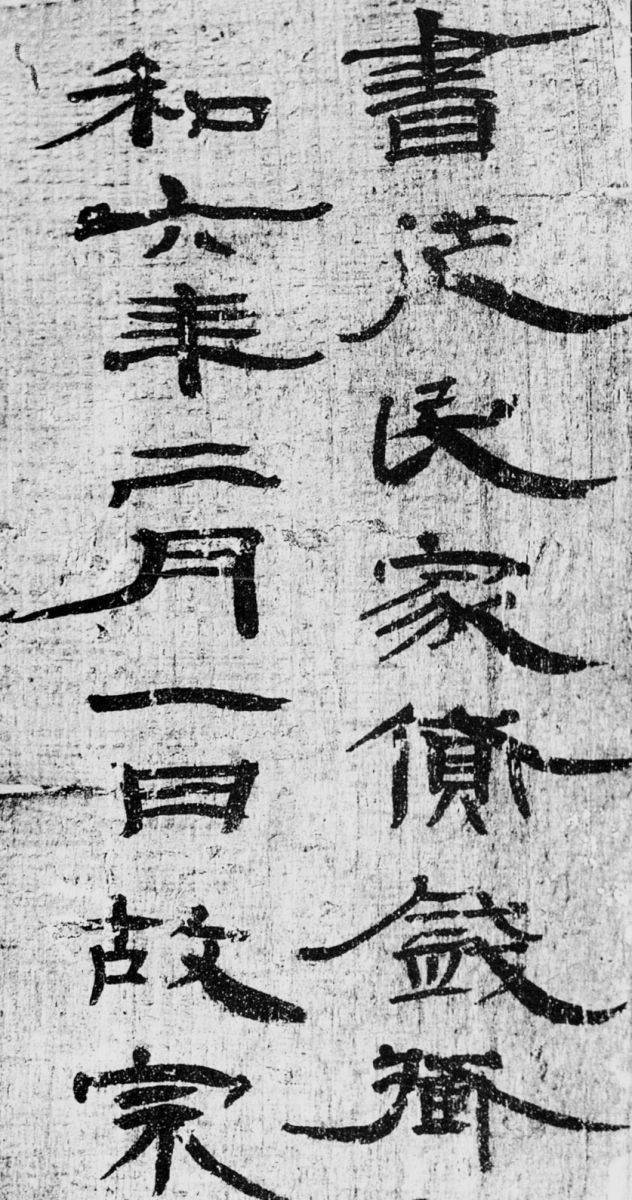 書從民家償錢
和六年二月一日故宗